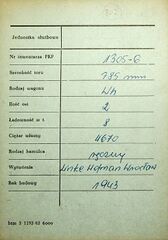 Jednostka służbowa
Nr inwentarza PKP 1305-G
Szerokość toru 785 mm
Rodzaj wagonu Wh
Ilość osi 2
Ładowność w t. 8
Ciężar własny 4670
Rodzaj hamulca ręczny
Wytwórnia Linke Hofman Wrocław
Rok budowy 1943